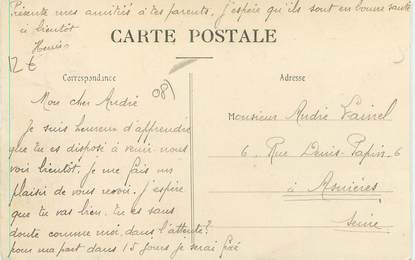 Présente mes amitiés à tes parents. J'espère qu'ils sont en bonne santé
à bientôt
CARTE POSTALE
12 €
Correspondance
Adresse
(08)
Mon cher André
Je suis heureux d'apprendre
que tu es disposé à venir nous
voir bientôt. Je me fais un
plaisir de vous revoir. J'espère
que tu vas bien. Tu es sans
doute comme moi, dans l'attente?
pour ma part dans 15 jours je serai fixé
Monsieur André
6. Rue Denis-Papin. 6
à Asnières
Seine